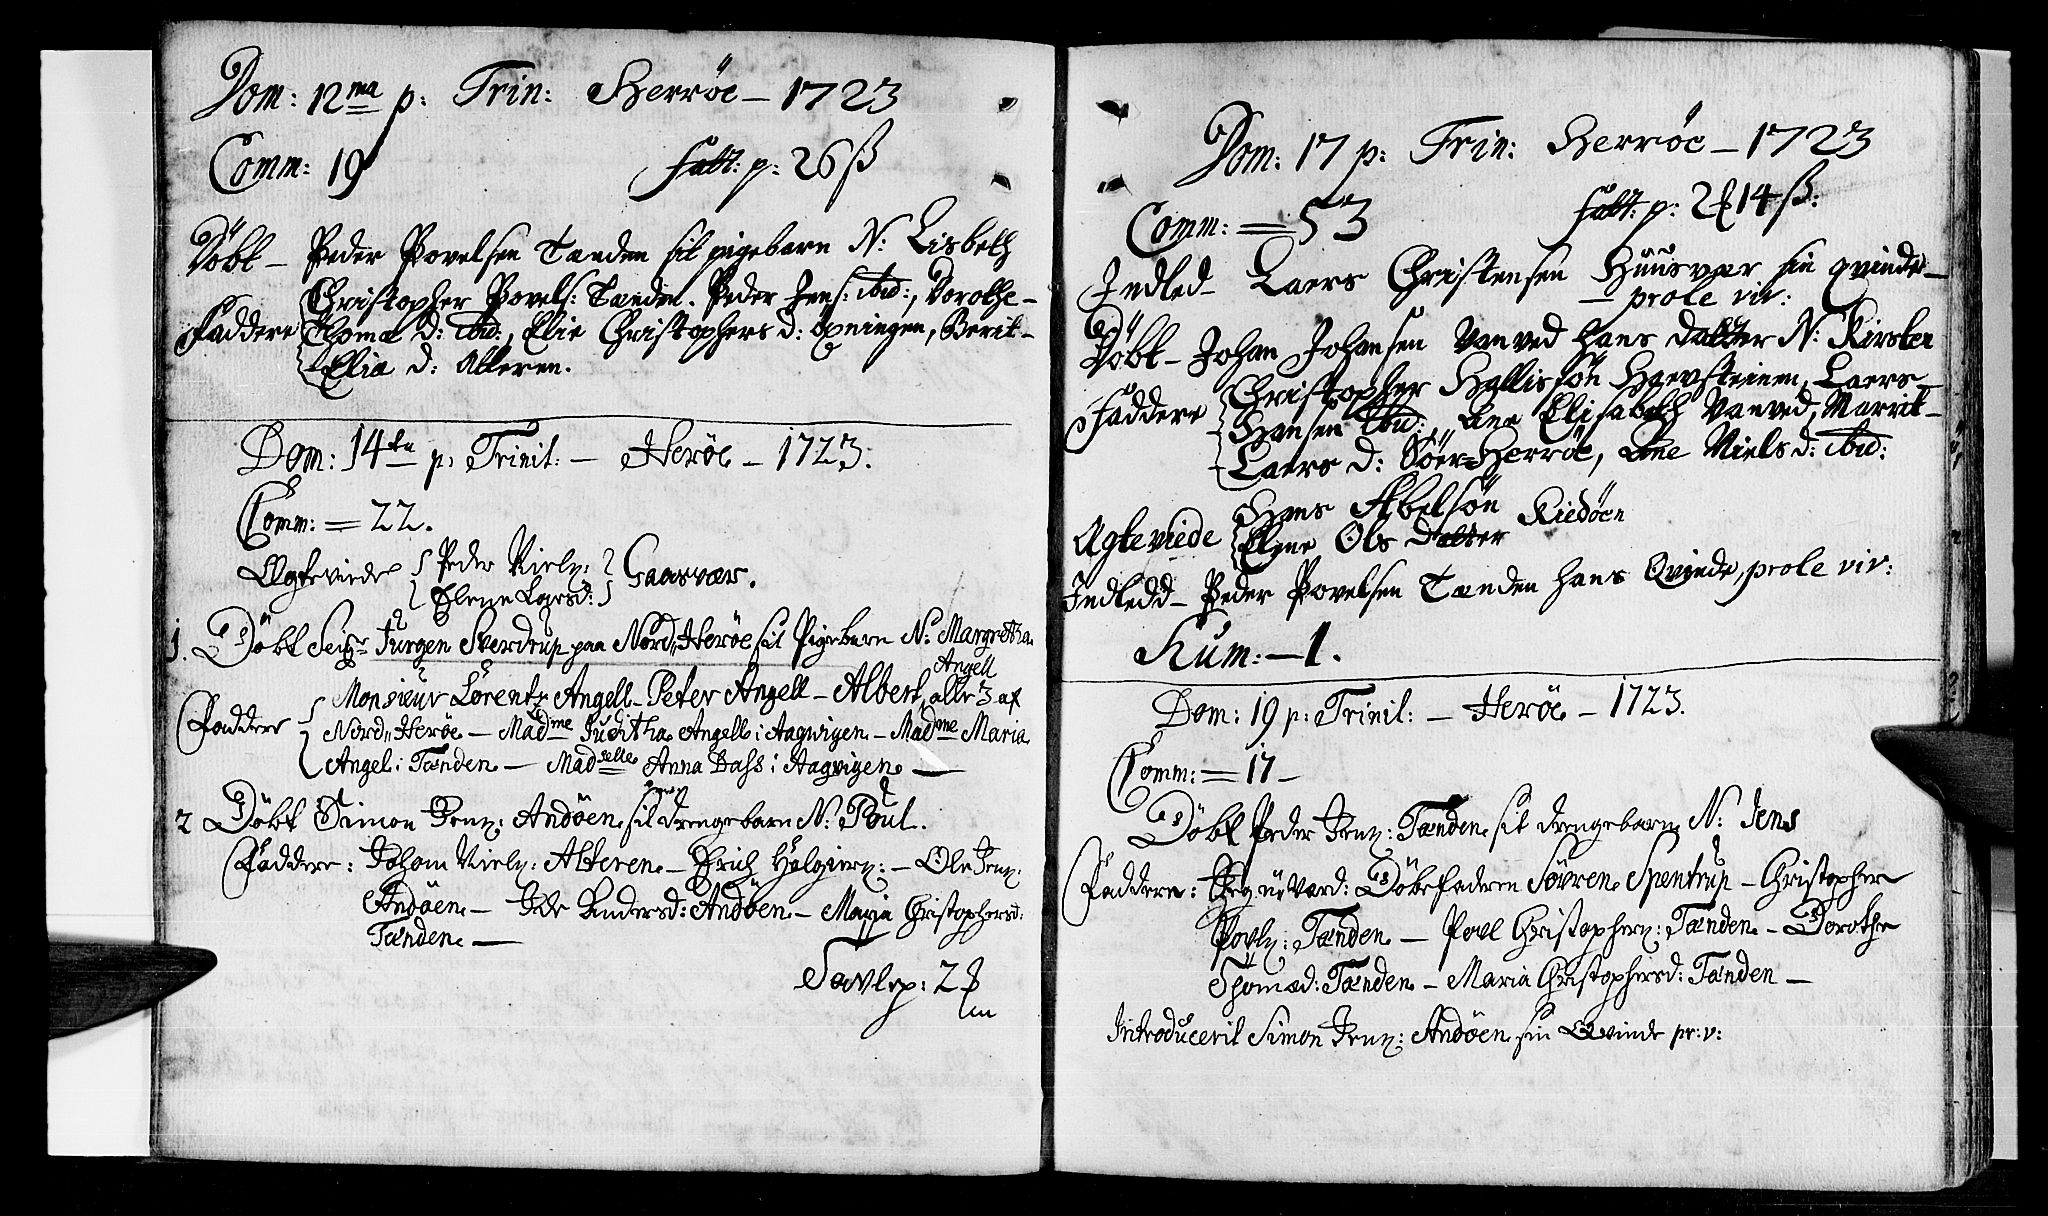 Dom: 12ma p: Trin: Herröe – 1723
Comm: 19 Fatt: p: 26 ß
Döbt – Peder Povelsen Tanden sit pigebarn N: Lisbeth
Christopher Povels: Tanden. Peder Jens: ibid:, Dorothe –
Faddere Thomæ d: ibid:, Elie Christophers d: Öpningen, Berit –
Eliæ d: Alteren.
Dom: 14ta p: Trinit: – Heröe – 1723.
Comm: = 22.
Ægteviede Peder Nielz: Gaasvær.
Elene Larsd:
1. Döbt Seigr Jurgen Sverdrup paa Nord Heröe sit Pigebarn N: Margretha
Angell
Monsieur Lorentz Angell – Peter Angell – Albert, alle 3 af
Faddere Nord Heröe – Madme Juditha Angell i Aagvigen – Madme Maria
Angel i Tanden – Madselle Anna Dass i Aagvigen –
2 Döbt Simon Jenz: Andöen sit drengebarn N: Poul.
Faddere: Johan Nielz: Alteren – Erich Holgierz: – Ole Jenz:
Andöen – Ide Andersd: Andöen – Marja Christophersd:
Tanden –
Tavlep: 2
Dom: 17 p: Trin: Herröe – 1723
Comm: = 53 Fatt: p: 2 14 ß:
Indled – Laers Christensen Huusvær sin qvinde –
– prole vir:
Döbt – Johan Johansen Vanved hans datter N: Kirsten
Christopher Hallissön Haevsteinen, Laers –
Faddere Hansen ibid:, Ane Elisabeth Vanved, Marrit –
Laers d: Söer=Herröe, Ane Niels d: ibid:
Hans Abelsön Riedöen
Agteviede Elene Ols datter
Indledd – Peder Povelsen Tanden hans Qvinde, prole vir:
Kum: – 1.
Dom: 19 p: Trinit: – Heröe – 1723.
Comm: = 17 –
Döbt Peder Jenz: Tanden sit drengebarn N: Jens
Faddere: Jeg Döbefaderen Sövren Spentrup – Christopher
Povlz: Tanden – Povl Christopherz: Tanden – Dorothe
Thomæd: Tanden – Maria Christophersd: Tanden –
Introducerit Simon Jenz: Andöen sin Qvinde pr: v: